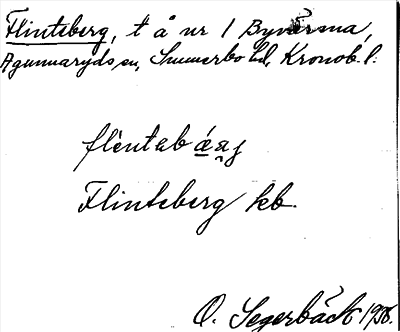 Flinteberg, t å nr 1 Byvärma,
Agunnaryds sn, Sunnerbo hd, Kronob. l.
flèntabá̱a̮j
Flinteberg kb.
O. Segerbäck 1936.